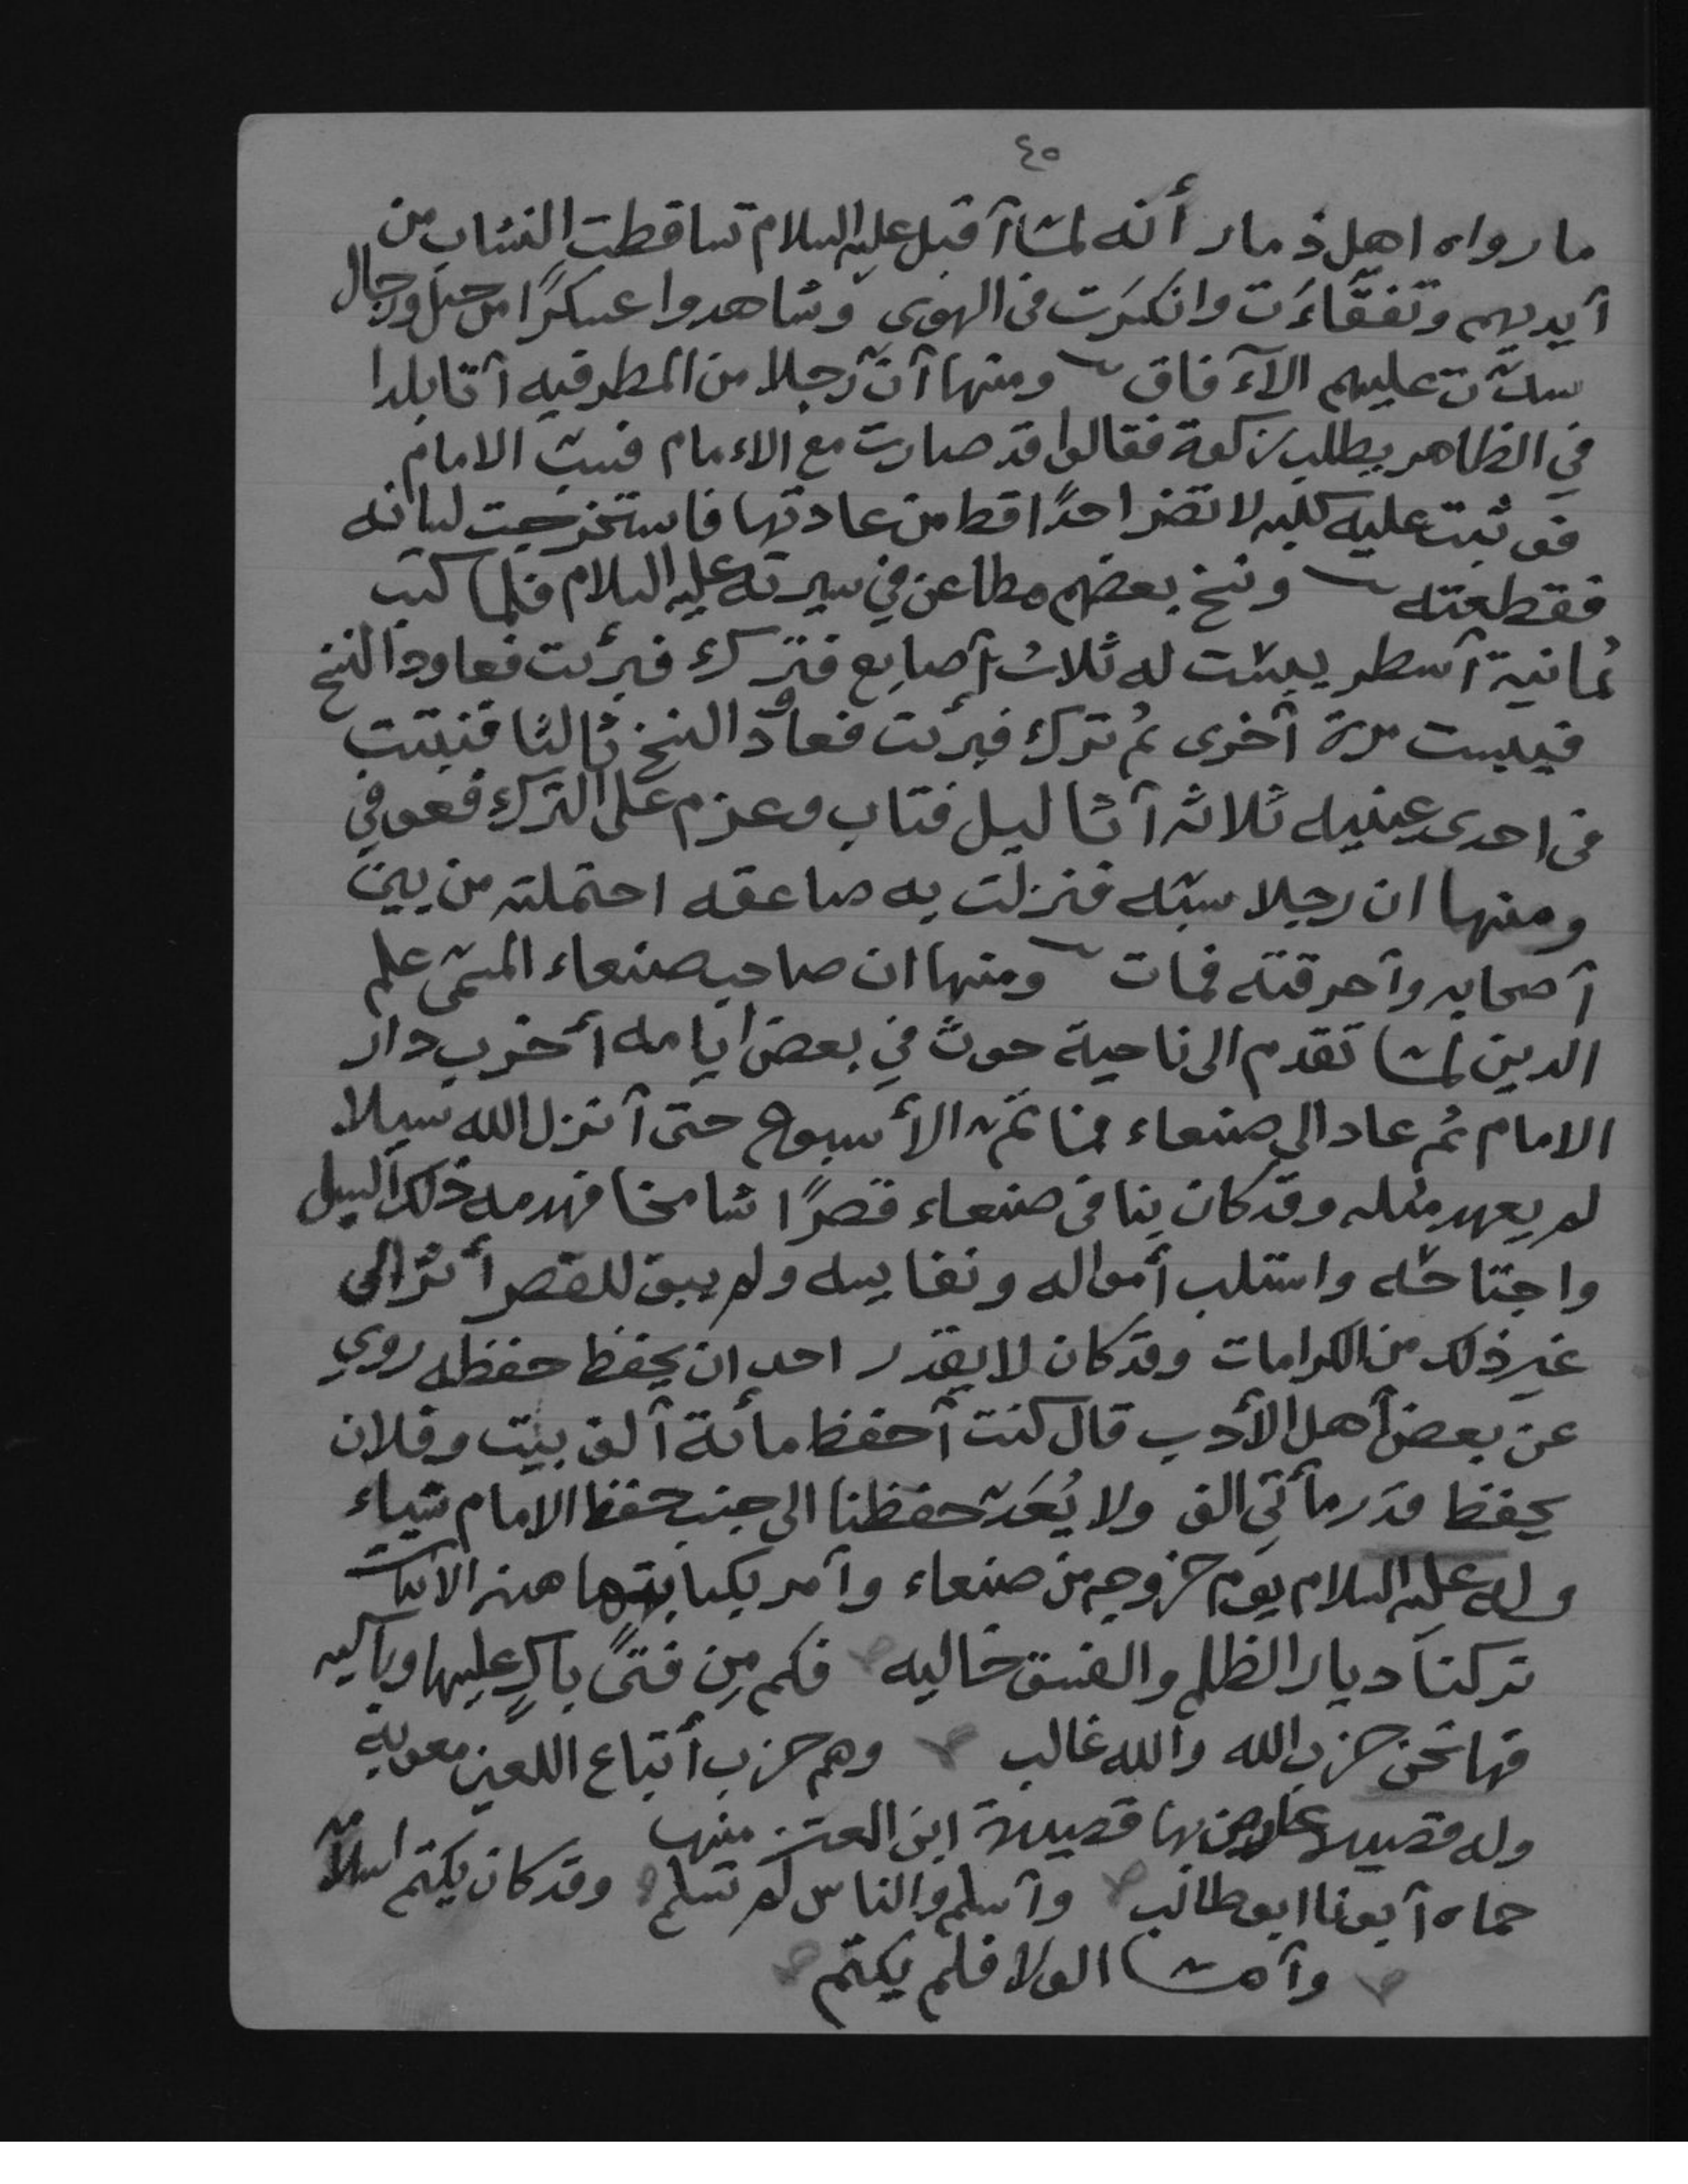 ٤٥
ما رواه اهل ذمار أنه لمّا أقبل عليه السلام تساقطت النشاب من
أيديهم وتفقّاءَت وانكسَرت في الهوى وشاهدوا عسكرًا من خيل ورجال
سدّت عليهم الآفاق ومنها أن رجلا من المطرفيه أتا بلدا
في الظاهر يطلب زكوة فقالوا قد صارت مع الامام فسبّ الامام
فوثبت عليه كلبه لا تضر احدًا قط من عادتها فاستخرجت لسانه
فقطعته ونسخ بعضهم مطاعن في سيرته عليه السلام فلما كتب
ثمانية أسطر يبسَت له ثلاث أصابع فترك فبرئت فعاود النسخ
فيبست مرة أخرى ثم ترك فبرئت فعاود النسخ ثالثا فنبتت
في احدى عينيه ثلاثه أثاليل فتاب وعزم على الترك فعوفي
ومنها ان رجلا سبّه فنزلت به صاعقه احتملته من بين
أصحابه وأحرقته فمات ومنها ان صاحب صنعاء المسمّى علم
الدين لمّا تقدم الى ناحية حوث في بعض ايامه أخرب دار
الامام ثم عاد الى صنعاء فما تمّ الأسبوع حتى أنزل الله سيلا
لم يعهد مثله وقد كان بنا في صنعاء قصرًا شامخا فهدمه ذلك السيل
واجتاحه واستلب أمواله ونفايسه ولم يبق للقصر أثر الى
غير ذلك من الكرامات وقد كان لا يقدر احد ان يحفظ حفظه روي
عن بعض أهل الأدب قال كنت أحفظ مائة ألف بيت وفلان
يحفظ قدر مأتي الف ولا يُعَدّ حفظنا الى جنب حفظ الامام شياء
وله عليه السلام يوم خروجه من صنعاء وأمر بكتابتها هذه الابيات
تركنا ديار الظلم والفسق خاليه فكم مِن فتىً باكٍ عليها وباكيه
فها نحن حزب الله والله غالب وهم حزب أتباع اللعين معويه
وله قصيدة عارض بها قصيدة ابن المعتز منها
حماه أبونا ابو طالب وأسلم والناس لم تسلم وقد كان يكتم اسلامه
وأمّا الولا فلم يكتم